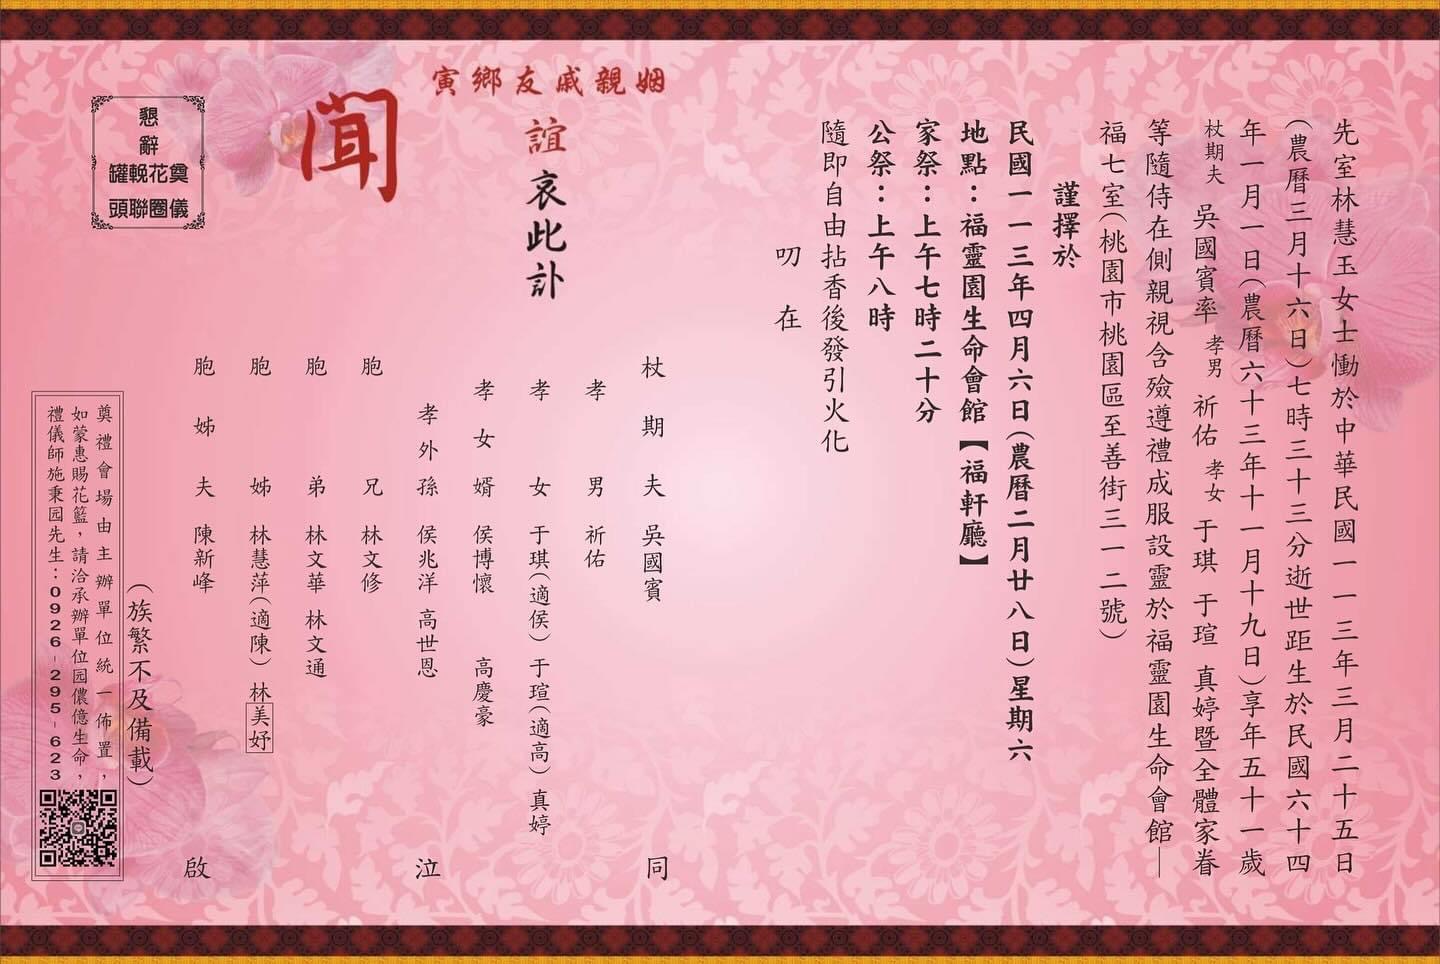 先室林慧玉女士慟於中華民國一一三年三月二十五日
(農曆三月十六日)七時三十三分逝世距生於民國六十四
年一月一日(農曆六十三年十一月十九日)享年五十一歲
杖期夫 吳國賓率 孝男 祈佑 孝女 于琪 于瑄 真婷暨全體家眷
等隨侍在側親視含殮遵禮成服設靈於福靈園生命會館—
福七室(桃園市桃園區至善街三一二號)
謹擇於
民國一一三年四月六日(農曆二月廿八日)星期六
地點：福靈園生命會館【福軒廳】
家祭：上午七時二十分
公祭：上午八時
隨即自由拈香後發引火化
叨在
姻親戚友鄉寅
誼哀此訃
聞
杖期夫 吳國賓
孝男 祈佑
孝女 于琪(適侯) 于瑄(適高) 真婷
孝女婿 侯博懷 高慶豪
孝外孫 侯兆洋 高世恩
胞兄 林文修
胞弟 林文華 林文通
胞姊 林慧萍(適陳) 林美妤
胞姊夫 陳新峰
同泣啟
(族繁不及備載)
懇辭
奠花輓罐
儀圈聯頭
奠禮會場由主辦單位統一佈置，
如蒙惠賜花籃，請洽承辦單位园儂億生命，
禮儀師施秉园先生：0926-295-623